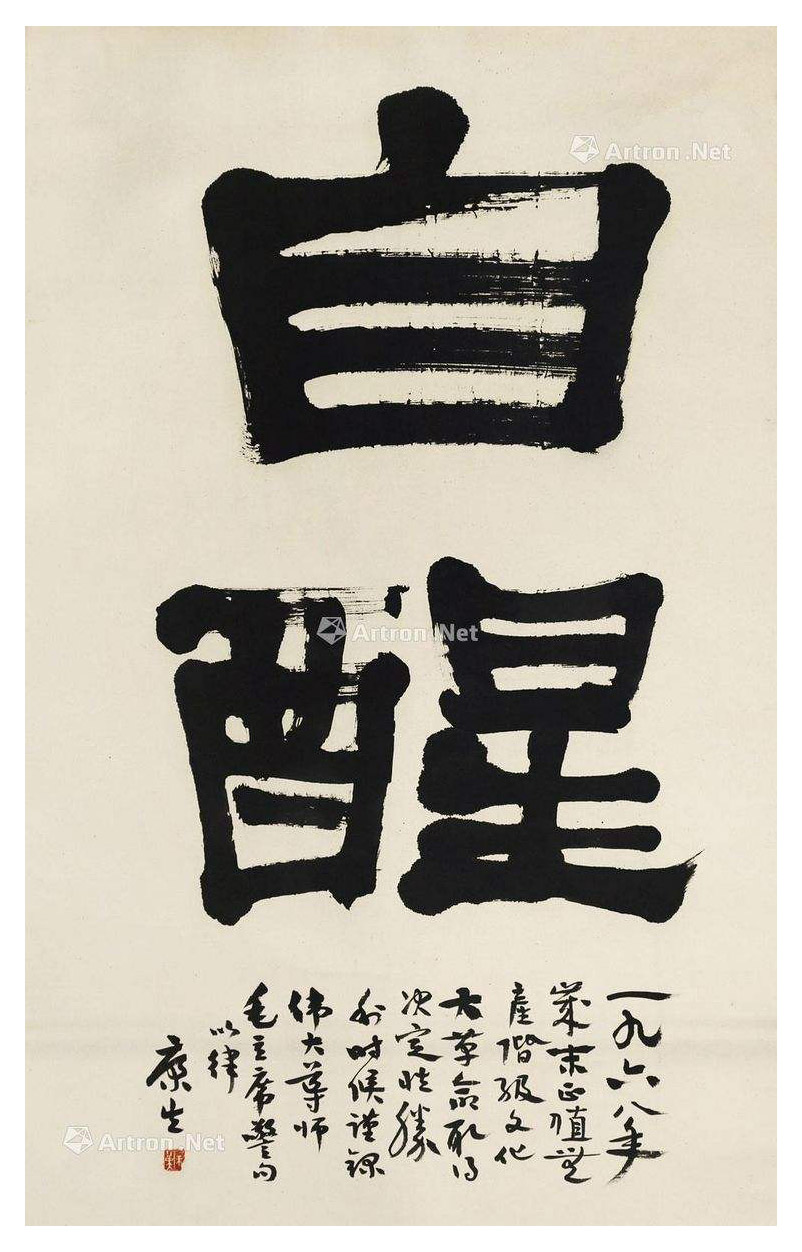 自
醒
一九六八年
岁末正值无
產階级文化
大革命取得
决定性勝
利时候谨録
伟大导师
毛主席警句
以律
康生
Artron.Net
Artron.Net
Artron.Net